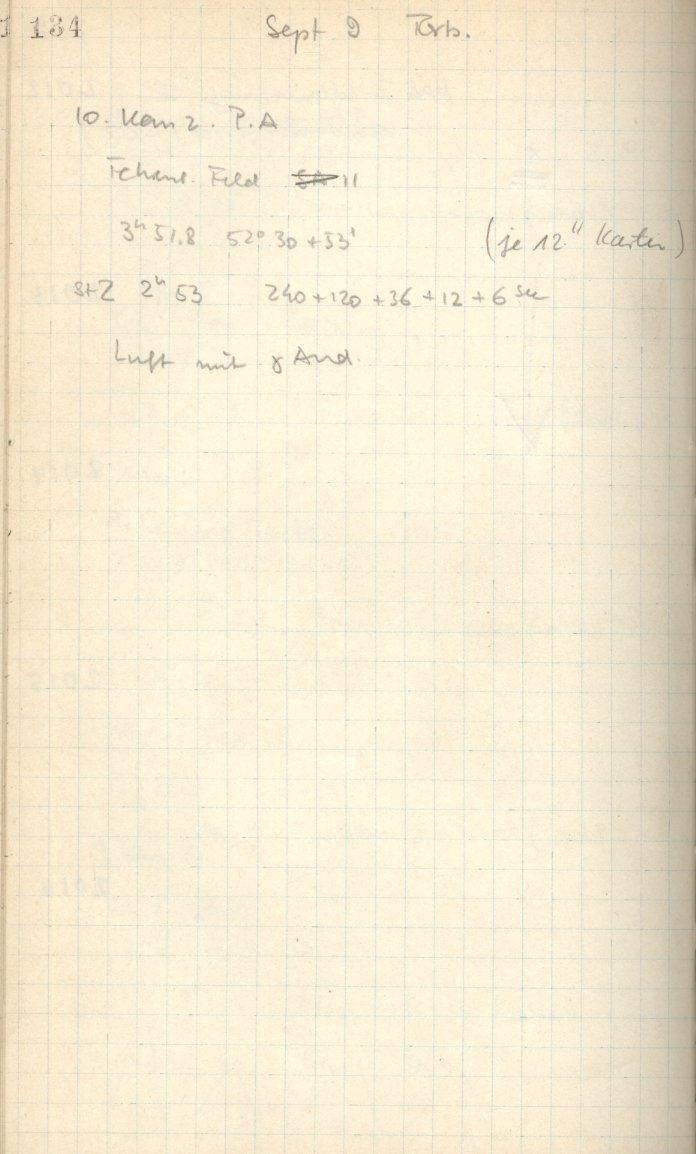 134 Sept 9
10. Kanz. P.A
Feld SA 11
3h 51.8 52° 30 + 53' (je 12" Karten)
StZ 2h 53 240 + 120 + 36 + 12 + 6 sec
Luft mit γ And.